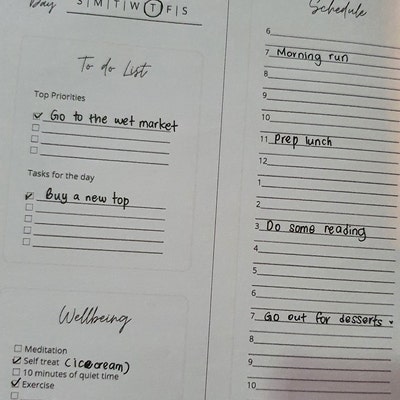 Day S | M | T | W | T | F | S
To do List
Top Priorities
Go to the wet market
Tasks for the day
Buy a new top
Wellbeing
Meditation
Self treat (ice cream)
10 minutes of quiet time
Exercise
Schedule
6
7 Morning run
8
9
10
11 Prep lunch
12
1
2
3 Do some reading
4
5
6
7 Go out for desserts ♥
8
9
10